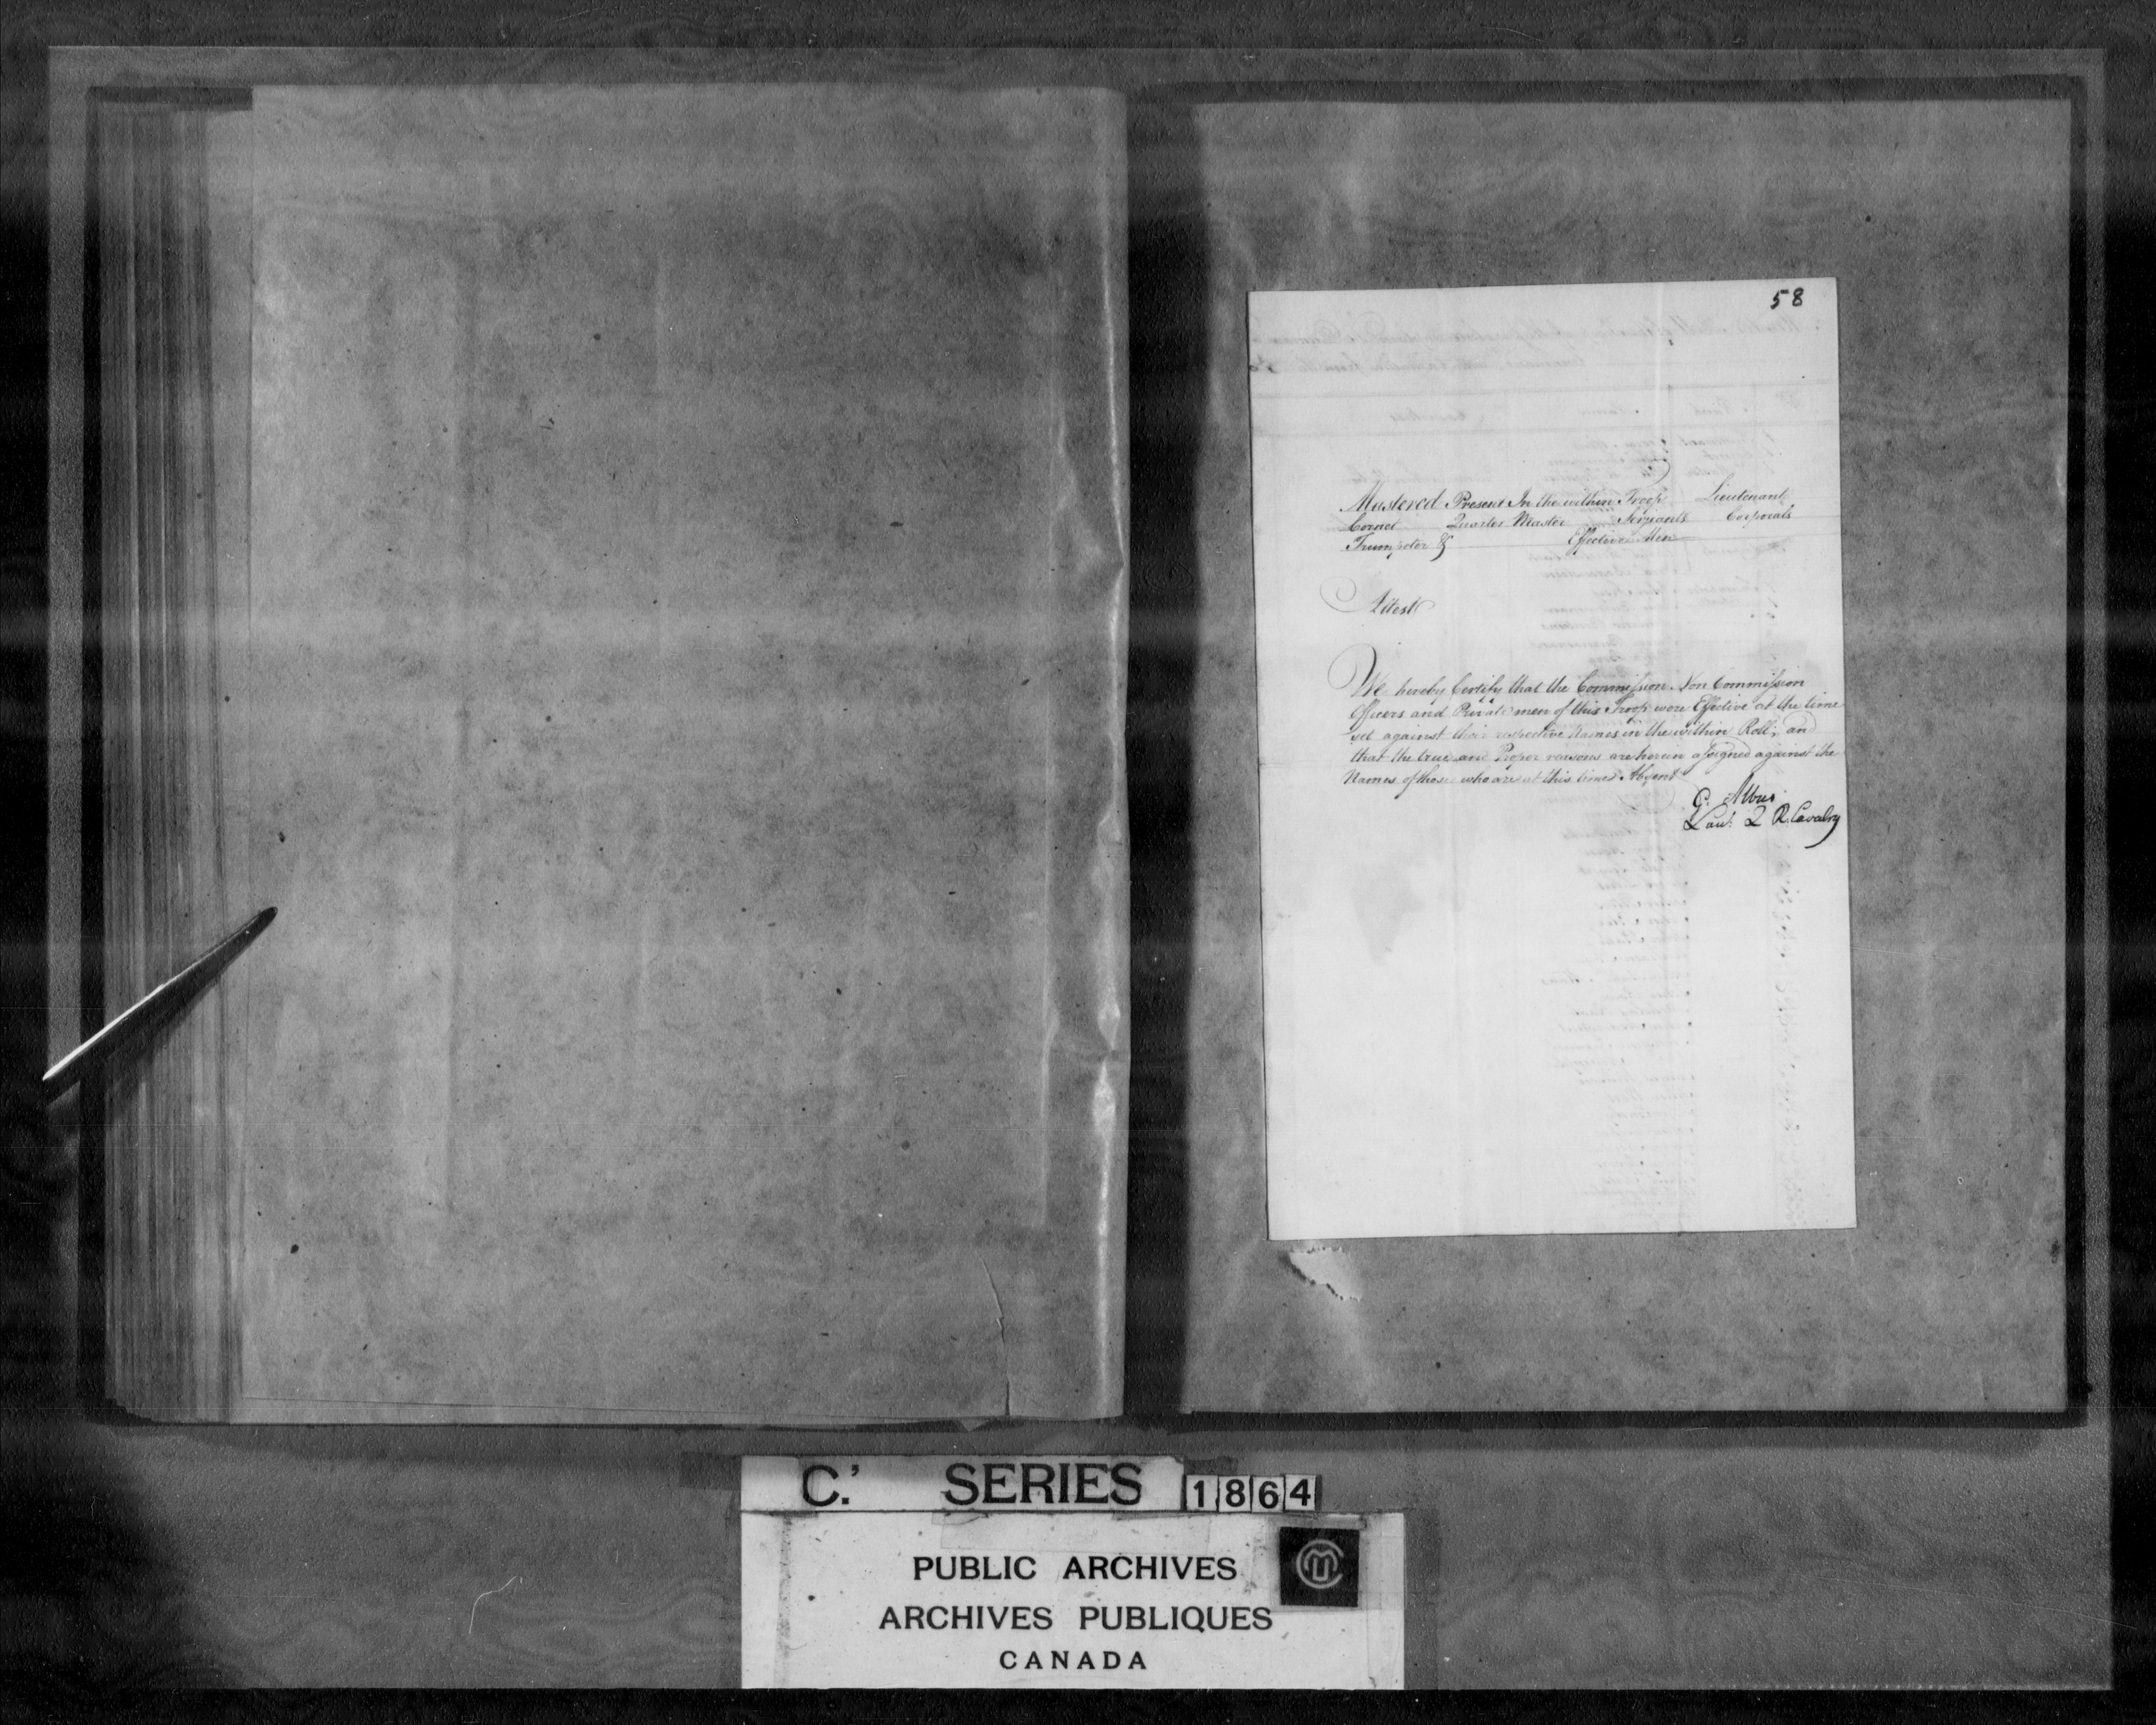 58
Mustered Present In the within Troop Lieutenant
Cornet Quarter Master Serjeants Corporals
Trumpeter & Effective Men
Attest
We hereby Certify that the Commission Non Commission
Officers and Private men of this Troop were Effective at the time
set against their respective Names in the within Roll, an
that the true and Proper reasons are herein assigned against the
Names of those who are at this time Absent
Lieut. R. Cavalry
C. SERIES 1864
PUBLIC ARCHIVES
ARCHIVES PUBLIQUES
CANADA